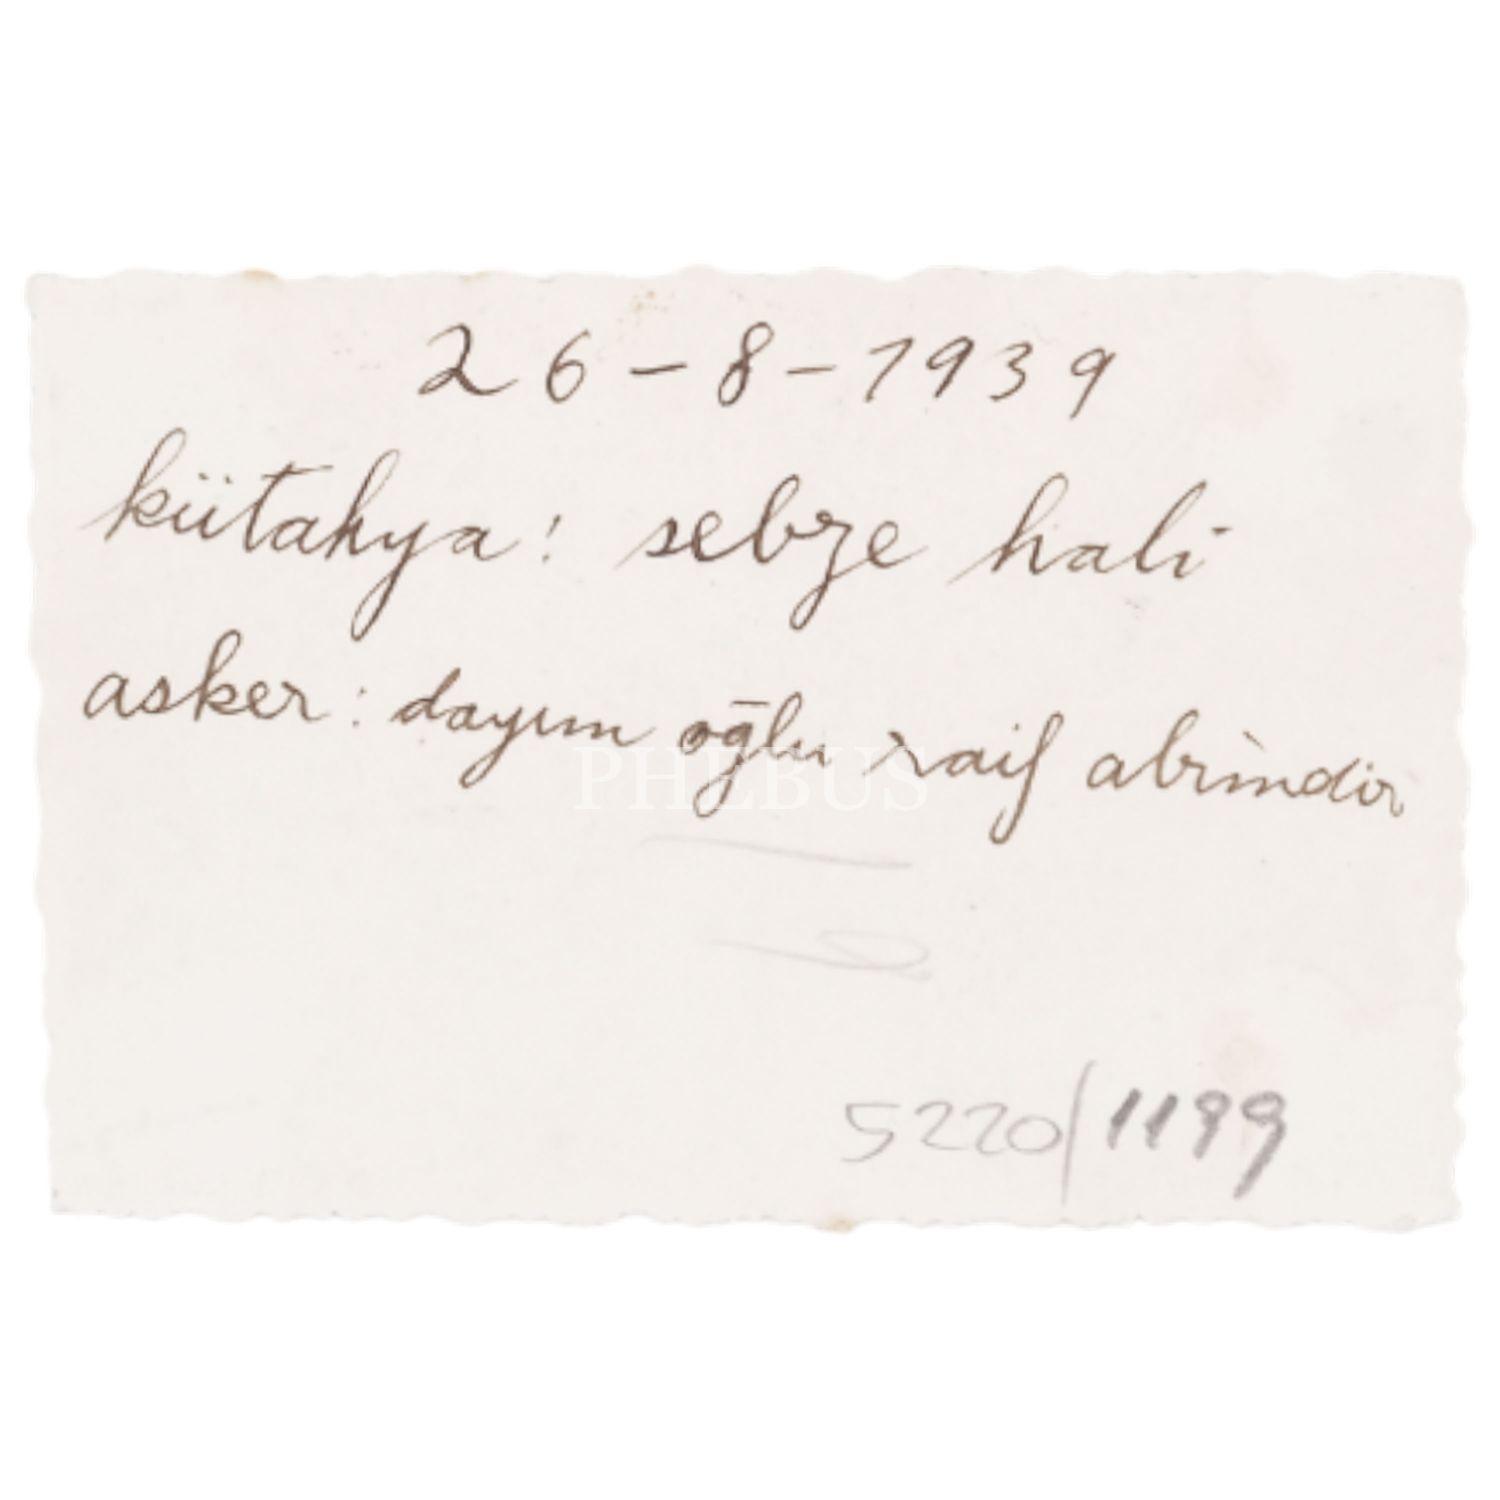 26-8-1939
kütahya: sebze hali
asker: dayım oğlu raif abimdir
PHEBUS
5220/1199